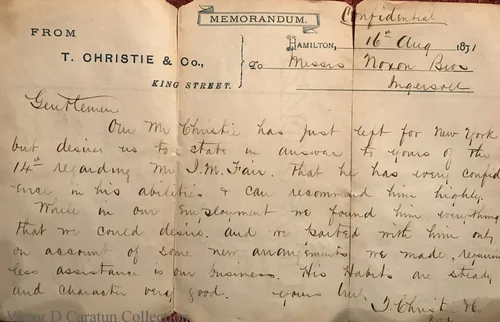 MEMORANDUM.
Confidential
FROM
HAMILTON, 16th Aug 1871
T. CHRISTIE & Co.,
To Messrs Noxon Bros
KING STREET.
Ingersoll
Gentlemen
Our Mr Christie has just left for New York
but desires us to state in answer to yours of the
14th regarding Mr J.M. Fair. that he has every confid
ence in his abilities & can recommend him highly.
While in our Employment we found him everything
that we could desire. and we parted with him only
on account of some new arrangements we made, requiring
less assistance in our business. His Habits are steady
and character very good. yours truly
T. Christie & Co.
Victor D Caratun Collection